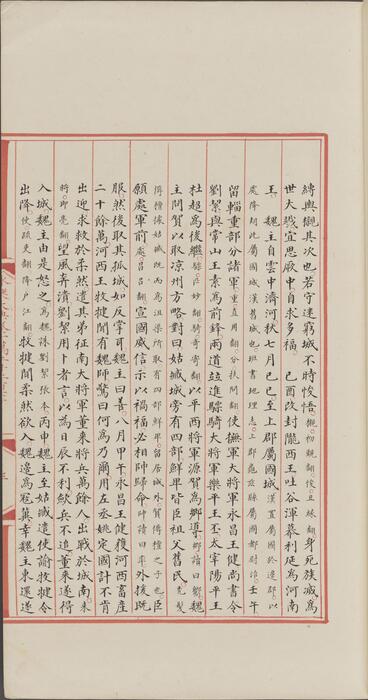 縛輿櫬其次也若守迷窮城不時悛悟櫬初覲翻悛丑緣翻身死族滅爲
世大戮宜思厥中自求多福 己酉改封隴西王吐谷渾慕利延爲河南
王 魏主自雲中濟河秋七月己巳至上郡屬國城漢置屬國於邊郡以
處降胡此屬國城漢舊城也班書地理志上郡龜兹縣屬國都尉治壬午
留輜重部分諸軍重直用翻分扶問翻使撫軍大將軍永昌王健尚書令
劉絜與常山王素爲前鋒兩道並進驃騎大將軍樂平王丕太宰陽平王
杜超爲後繼驃匹妙翻騎奇寄翻以平西將軍源賀爲鄉導鄉讀曰嚮魏
主問賀以取涼州方略對曰姑臧城旁有四部鮮卑皆臣祖父舊民禿髮
傉檀據姑臧既而爲沮渠所取有四部鮮卑留居城外賀傉檀之子也臣
願處軍前處昌呂翻宣國威信示以禍福必相帥歸命帥讀曰率外援既
服然後取其孤城如反掌耳魏主曰善 八月甲午永昌王健獲河西畜產
二十餘萬河西王牧犍聞有魏師驚曰何爲乃爾用左丞姚定國計不肯
出迎求救於柔然遣其弟征南大將軍董來將兵萬餘人出戰於城南來
將即亮翻望風奔潰劉絜用卜者言以爲日辰不利斂兵不追董來遂得
入城魏主由是怒之爲魏誅劉絜張本丙申魏主至姑臧遣使諭牧犍令
出降使疏吏翻降戶江翻牧犍聞柔然欲入魏邊爲寇冀幸魏主東還遂